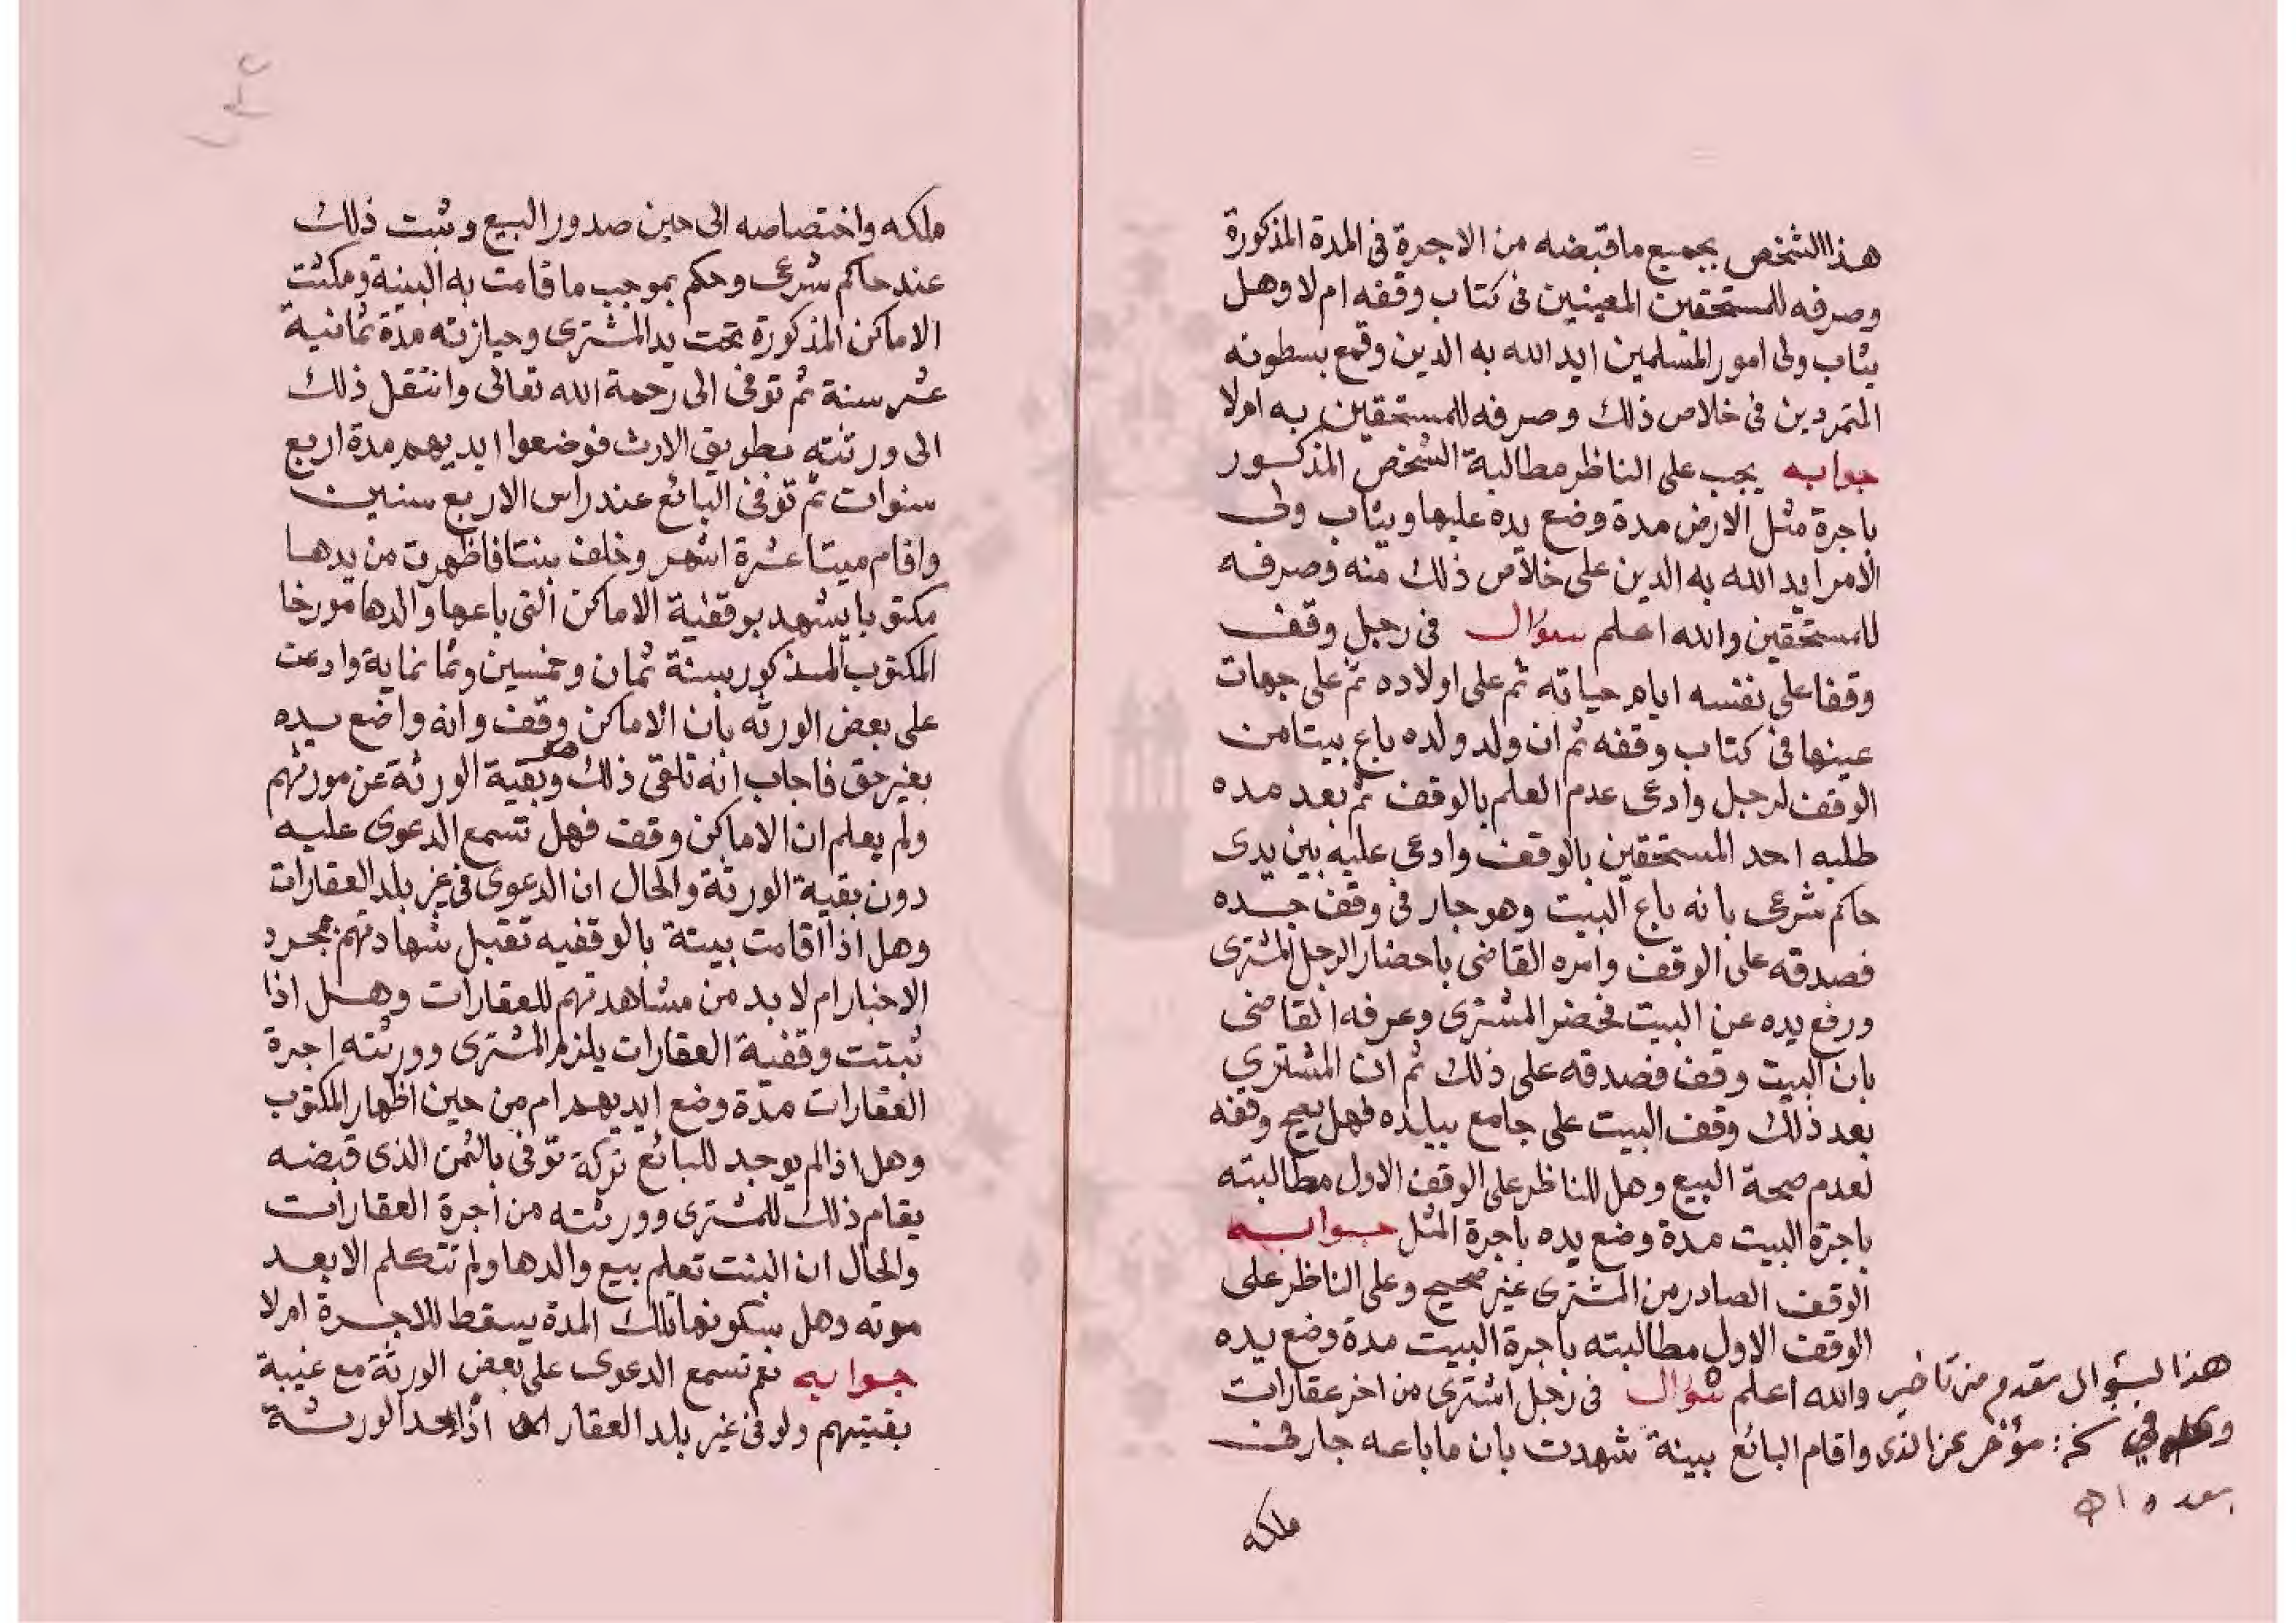 هذا الشخص بجميع ما قبضه من الاجرة فى المدة المذكورة
وصرفه للمستحقين المعينين فى كتاب وقفه ام لا وهل
يثاب ولى امور المسلمين ايد الله به الدين وقمع بسطوته
المتمردين فى خلاص ذلك وصرفه للمستحقين به ام لا
جوابه يجب على الناظر مطالبة الشخص المذكور
باجرة مثل الارض مدة وضع يده عليها ويثاب ولى
الامر ايد الله به الدين على خلاص ذلك منه وصرفه
للمستحقين والله اعلم سؤال فى رجل وقف
وقفا على نفسه ايام حياته ثم على اولاده ثم على جهات
عينها فى كتاب وقفه ثم ان ولد ولده باع بيتا من
الوقف لرجل وادعى عدم العلم بالوقف ثم بعد مده
طلبه احد المستحقين بالوقف وادعى عليه بين يدى
حاكم شرعى بانه باع البيت وهو جار فى وقف جده
فصدقه على الوقف وامره القاضى باحضار الرجل المشترى
ورفع يده عن البيت فحضر المشترى وعرفه القاضى
بان البيت وقف فصدقه على ذلك ثم ان المشتري
بعد ذلك وقف البيت على جامع ببلده فهل يصح وقفه
لعدم صحة البيع وهل للناظر على الوقف الاول مطالبته
باجرة البيت مدة وضع يده باجرة المثل جوابه
الوقف الصادر من المشترى غير صحيح وعلى الناظر على
الوقف الاول مطالبته باجرة البيت مدة وضع يده
والله اعلم سؤال فى رجل اشترى من اخر عقارات
واقام البائع بينة شهدت بان ما باعه جار فى
ملكه
هذا السؤال مقدم من تاخير
وفي نخ: مؤخر عن الذى
بعده اه
ملكه واختصاصه الى حين صدور البيع وثبت ذلك
عند حاكم شرعى وحكم بموجب ما قامت به البينة ومكثت
الاماكن المذكورة تحت يد المشترى وحيازته مدة ثمانية
عشر سنة ثم توفى الى رحمة الله تعالى وانتقل ذلك
الى ورثته بطريق الارث فوضعوا ايديهم مدة اربع
سنوات ثم توفى البائع عند راس الاربع سنين
واقام ميتا عشرة اشهر وخلف بنتا فاظهرت من يدها
مكتوبا يشهد بوقفية الاماكن التى باعها والدها مورخا
المكتوب المذكور بسنة ثمان وخمسين وثمانماية وادعت
على بعض الورثه بان الاماكن وقف وانه واضع يده
بغير حق فاجاب انه تلقى ذلك هو وبقية الورثة عن مورثهم
ولم يعلم ان الاماكن وقف فهل تسمع الدعوى عليه
دون بقية الورثة والحال ان الدعوى فى غير بلد العقارات
وهل اذا اقامت بينة بالوقفيه تقبل شهادتهم بمجرد
الاخبار ام لا بد من مشاهدتهم للعقارات وهل اذا
ثبتت وقفية العقارات يلزم المشترى وورثته اجرة
العقارات مدة وضع ايديهم ام من حين اظهار المكتوب
وهل اذا لم يوجد للبائع تركة توفى بالثمن الذى قبضه
يقام ذلك للمشترى وورثته من اجرة العقارات
والحال ان البنت تعلم بيع والدها ولم تتكلم الا بعد
موته وهل سكوتها تلك المدة يسقط للاجرة ام لا
جوابه نعم تسمع الدعوى على بعض الورثة مع غيبة
بقيتهم ولو فى غير بلد العقار اذ احد الورثة